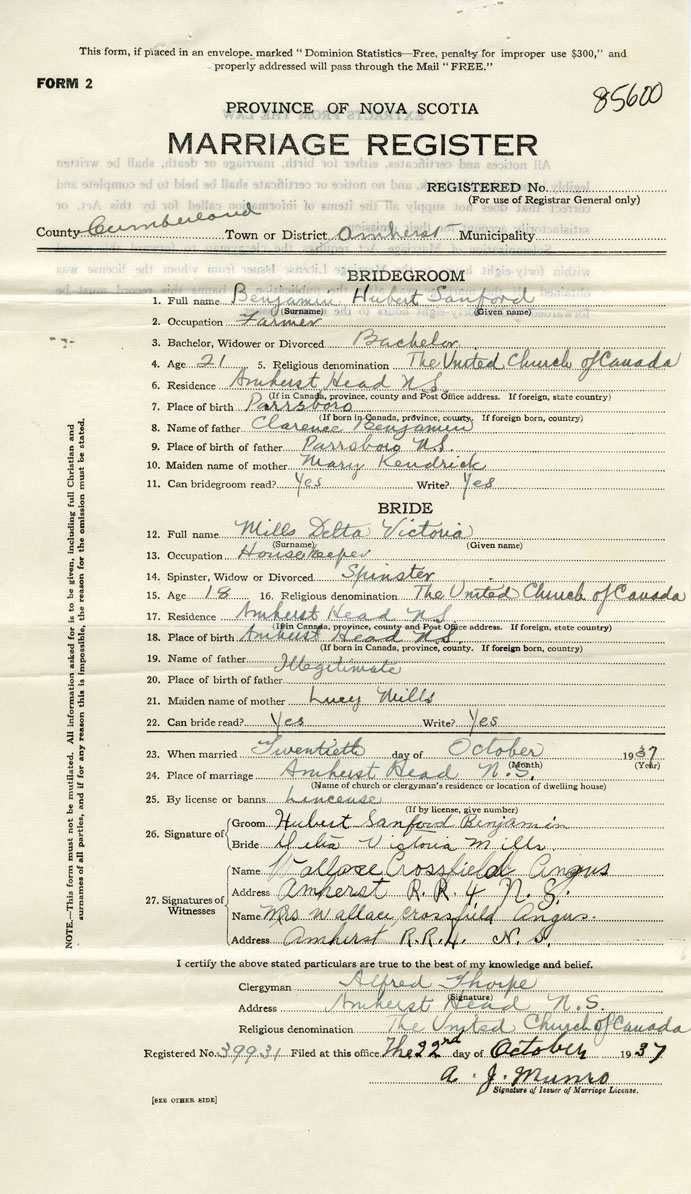 This form, if placed in an envelope, marked "Dominion Statistics—Free, penalty for improper use $300," and
properly addressed will pass through the Mail "FREE."
FORM 2
85600
PROVINCE OF NOVA SCOTIA
MARRIAGE REGISTER
REGISTERED No.
(For use of Registrar General only)
County Cumberland Town or District Amherst Municipality
BRIDEGROOM
1. Full name Benjamin Hubert Sanford
(Surname) (Given name)
2. Occupation Farmer
3. Bachelor, Widower or Divorced Bachelor
4. Age 21 5. Religious denomination The United Church of Canada
6. Residence Amherst Head N.S.
(If in Canada, province, county and Post Office address. If foreign, state country)
7. Place of birth Parrsboro
(If born in Canada, province, county. If foreign born, country)
8. Name of father Clarence Benjamin
9. Place of birth of father Parrsboro N.S.
10. Maiden name of mother Mary Kendrick
11. Can bridegroom read? Yes Write? Yes
BRIDE
12. Full name Mills Delta Victoria
(Surname) (Given name)
13. Occupation Housekeeper
14. Spinster, Widow or Divorced Spinster
15. Age 18 16. Religious denomination The United Church of Canada
17. Residence Amherst Head N.S.
(If in Canada, province, county and Post Office address. If foreign, state country)
18. Place of birth Amherst Head N.S.
(If born in Canada, province, county. If foreign born, country)
19. Name of father Illegitimate
20. Place of birth of father
21. Maiden name of mother Lucy Mills
22. Can bride read? Yes Write? Yes
23. When married Twentieth day of October 1937
(Month) (Year)
24. Place of marriage Amherst Head N.S.
(Name of church or clergyman's residence or location of dwelling house)
25. By license or banns Lincense
(If by license, give number)
26. Signature of Groom Hubert Sanford Benjamin
Bride Delta Victoria Mills
27. Signatures of Witnesses
Name Wallace Crossfield Angus
Address Amherst R.R. 4 N.S.
Name Mrs Wallace Crossfield Angus.
Address Amhirst R.R.4. N.S.
I certify the above stated particulars are true to the best of my knowledge and belief.
Clergyman Alfred Thorpe
(Signature)
Address Amherst Head N.S.
Religious denomination The United Church of Canada
Registered No. 39931 Filed at this office The 22nd day of October 1937
A. J. Munro
Signature of Issuer of Marriage License.
[SEE OTHER SIDE]
NOTE.—This form must not be mutilated. All information asked for is to be given, including full Christian and
surnames of all parties, and if for any reason this is impossible, the reason for the omission must be stated.